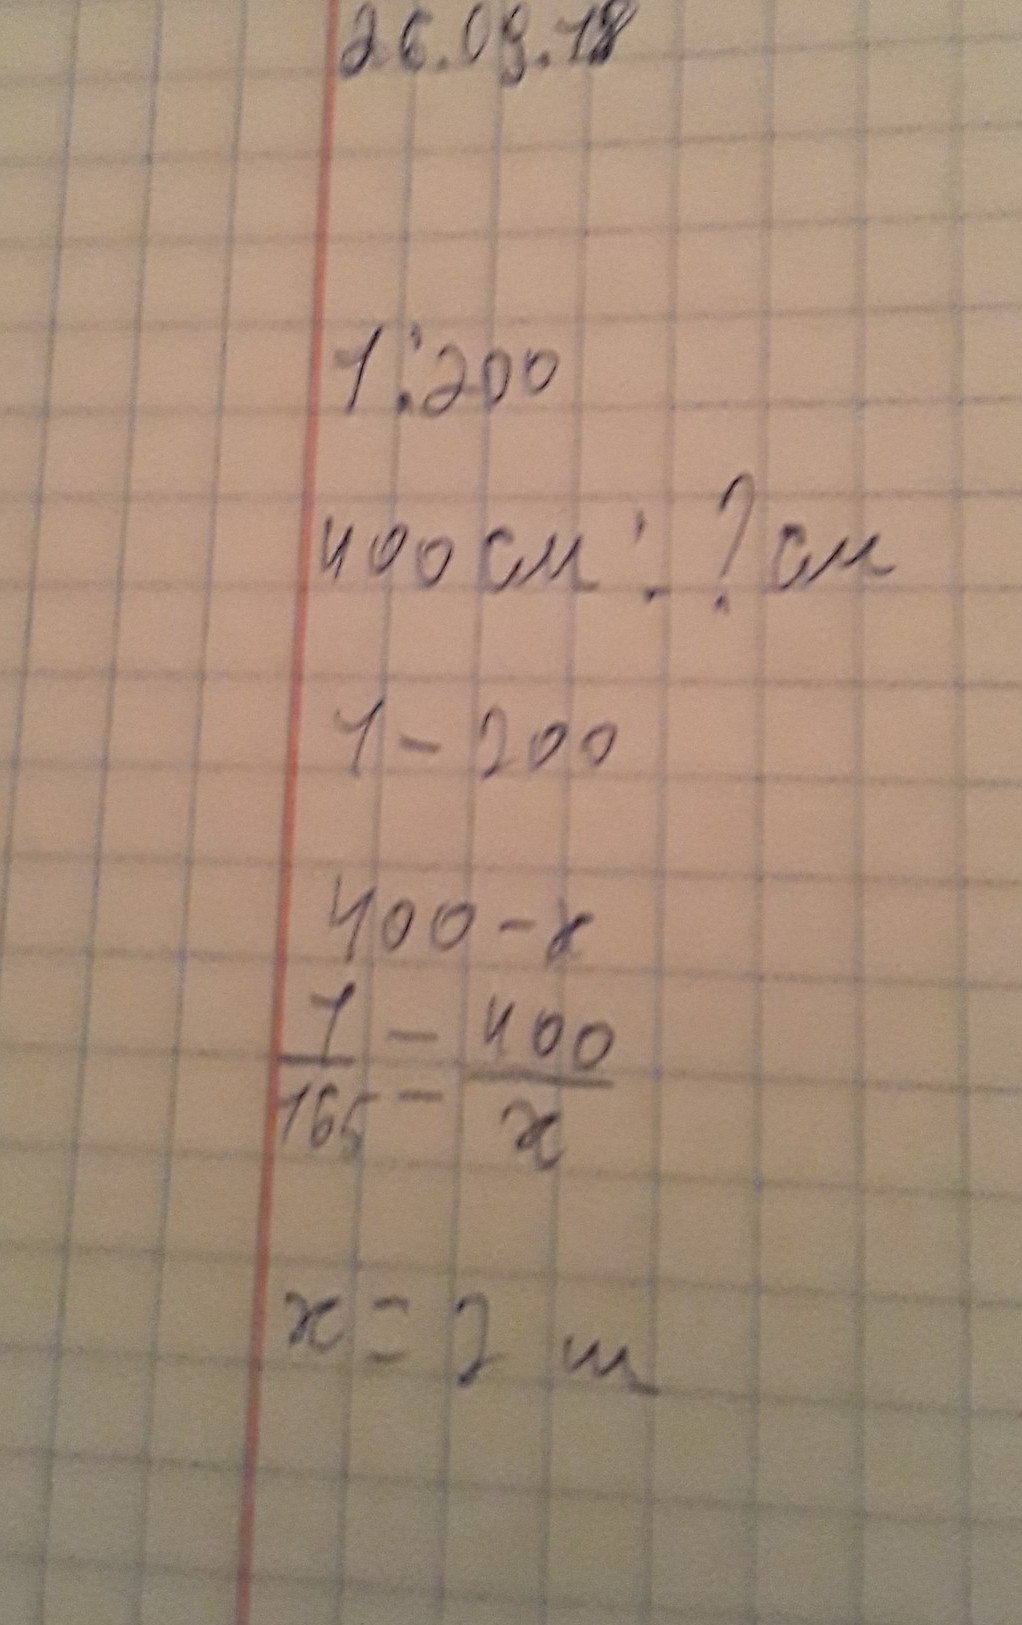 26.09.18
1:200
400 см : ? см
1 - 200
400 - x
1/165 = 400/x
x = 2 м